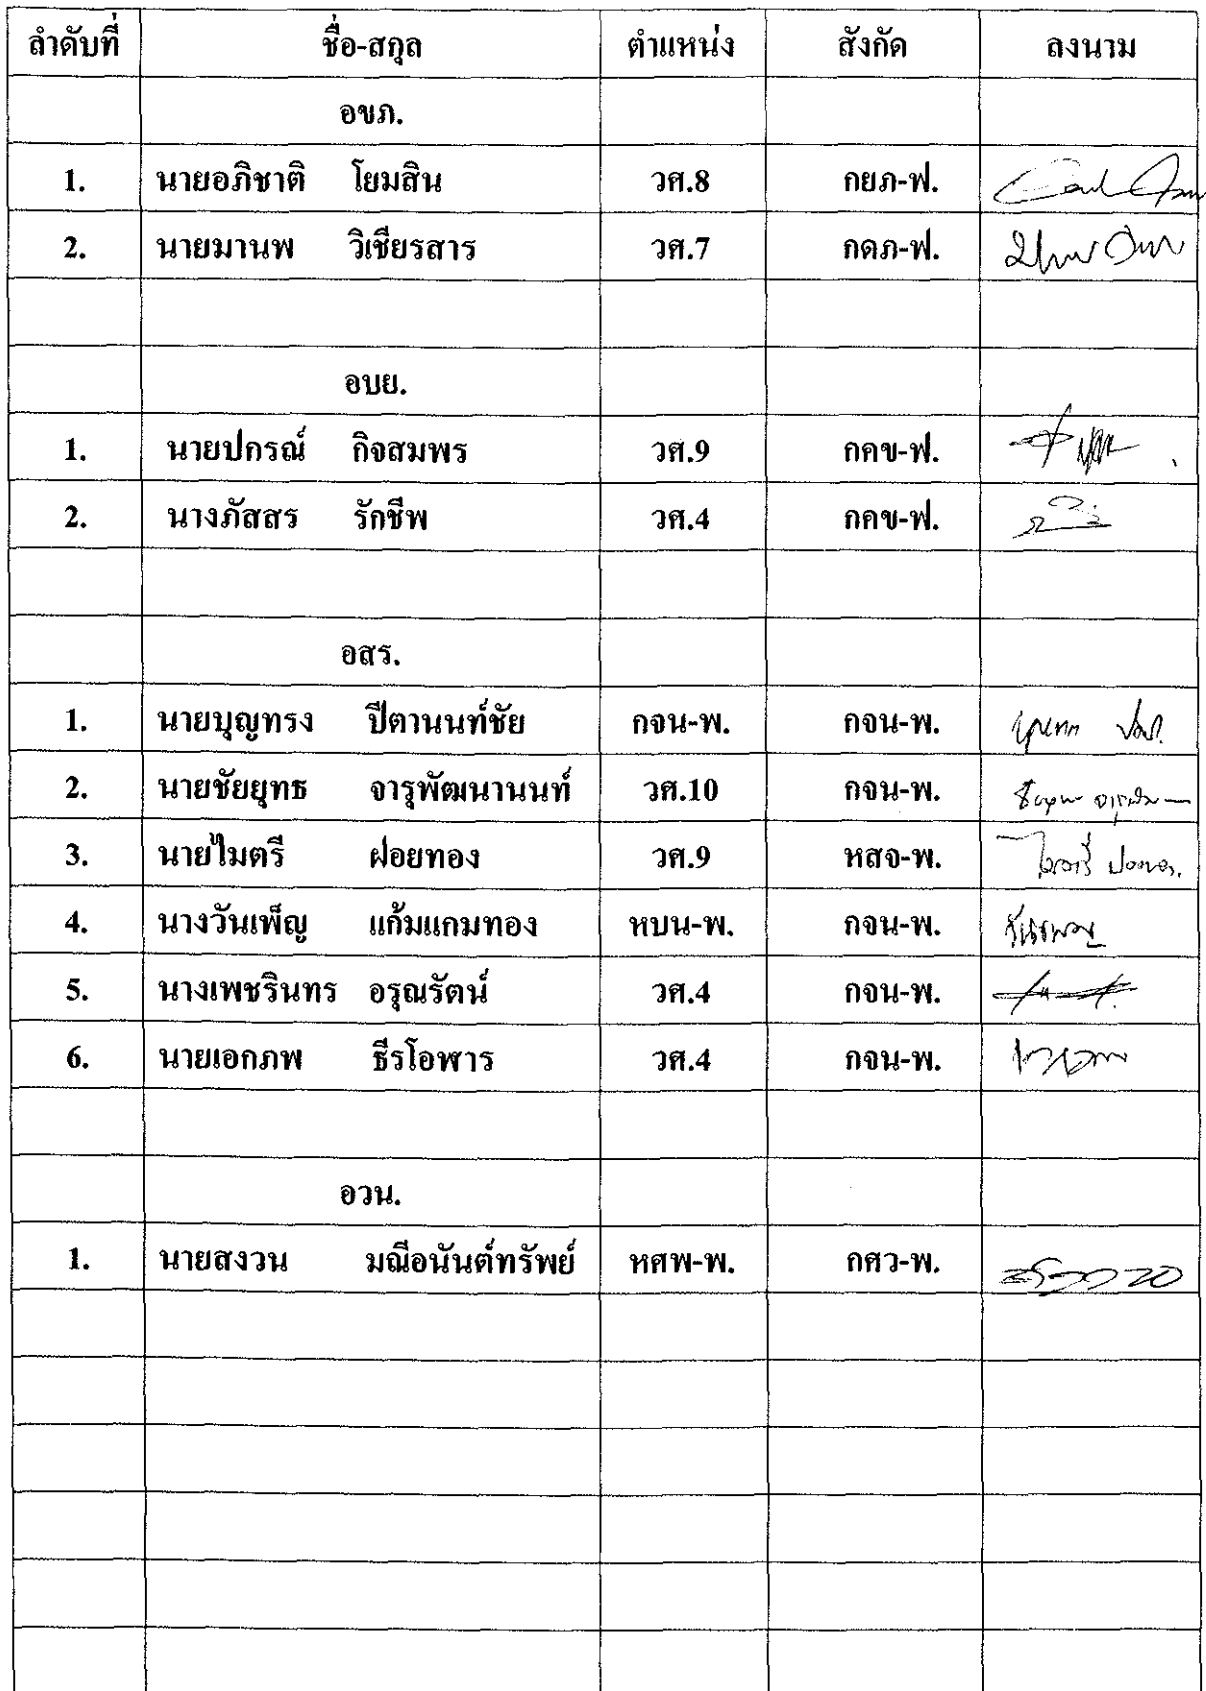 ลำดับที่ ชื่อ-สกุล ตำแหน่ง สังกัด ลงนาม
อขภ.
1. นายอภิชาติ โยมสิน วศ.8 กยภ-ฟ.
2. นายมานพ วิเชียรสาร วศ.7 กดภ-ฟ.
อบย.
1. นายปกรณ์ กิจสมพร วศ.9 กคข-ฟ.
2. นางภัสสร รักชีพ วศ.4 กคข-ฟ.
อสร.
1. นายบุญทรง ปีตานนท์ชัย กจน-พ. กจน-พ.
2. นายชัยยุทธ จารุพัฒนานนท์ วศ.10 กจน-พ.
3. นายไมตรี ฝอยทอง วศ.9 หสจ-พ.
4. นางวันเพ็ญ แก้มแกมทอง หบน-พ. กจน-พ.
5. นางเพชรินทร อรุณรัตน์ วศ.4 กจน-พ.
6. นายเอกภพ ธีรโอฬาร วศ.4 กจน-พ.
อวน.
1. นายสงวน มณีอนันต์ทรัพย์ หศพ-พ. กศว-พ.